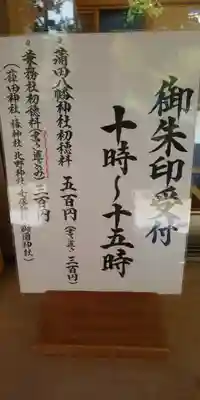 御朱印受付
十時〜十五時
・蒲田八幡神社初穂料 五百円(書き置き三百円)
・兼務社初穂料(書き置きのみ)三百円
(薭田神社 椿神社 北野神社 御園神社)